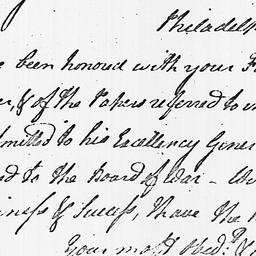 Philadelp
been honored with your F
& of the Papers referred to in
mitted to his Excellency Gener
to the Board of War -
iness & Success, I have the
Your most Obed.t &